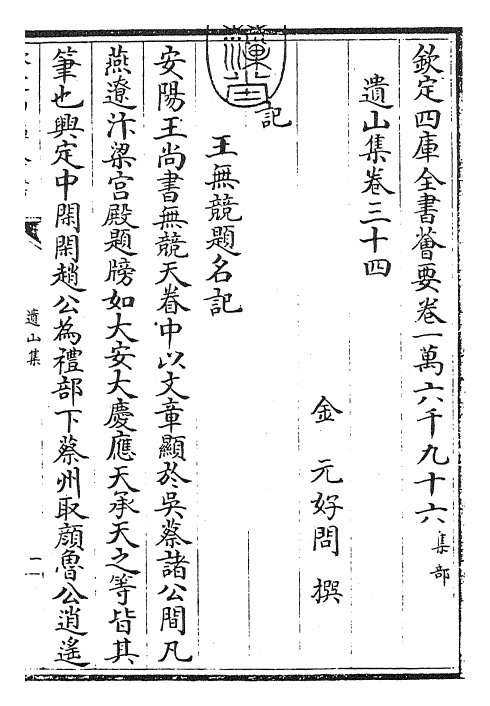 欽定四庫全書薈要卷一萬六千九十六集部
遺山集卷三十四
金元好問撰
記
王無競題名記
安陽王尚書無競天眷中以文章顯於吳蔡諸公間凡
燕遼汴梁宮殿題牓如大安大慶應天承天之等皆其
筆也興定中閑閑趙公為禮部下蔡州取顏魯公逍遙
遺山集